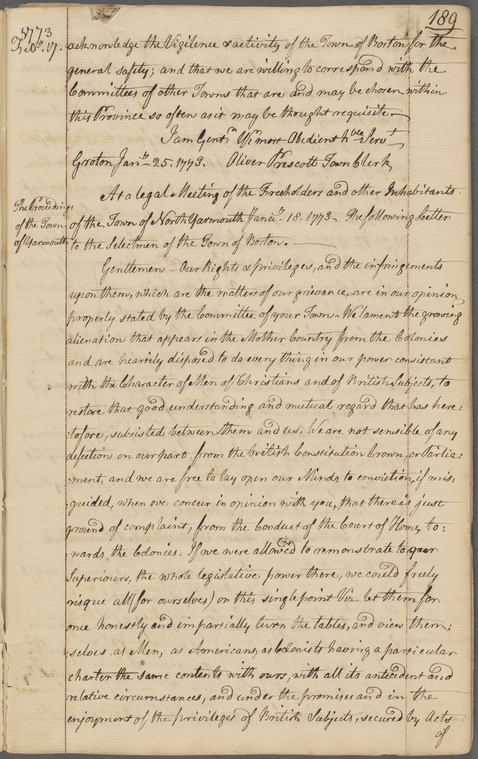 189
1773
Feb. 17.
acknowledge the Vigilence & activity of the Town of Boston for the
general safety; and that we are willing to correspond with the
Committees of other Towns that are and may be chosen within
this Province so often as it may be thought requisite.
I am Gentn. Yr. most Obedient hble Servt
Groton Jany. 25. 1773. Oliver Prescott Town Clerk,
At a legal Meeting of the Freeholders and other Inhabitants
The Proceedings
of the Town
of Yarmouth
of the Town of North Yarmouth Janry. 18. 1773. The following Letter
to the Selectmen of the Town of Boston.
Gentlemen - Our Rights & privileges, and the infringements
upon them, which are the matters of our grievance, are in our opinion
properly stated by the Committee of your Town. We lament the growing
alienation that appears in the Mother Country from the Colonies
and are heartily disposed to do every thing in our power consistant
with the Character of Men of Christians and of British Subjects, to
restore that good understanding and mutual regard that has here:
:tofore, subsisted between them and us. We are not sensible of any
defection on our part, from the British Constitution Crown, or Parlia:
:ment, and we are free to lay open our Minds to conviction, if mis
:guided, when we concur in opinion with you, that there is just
ground of complaint, from the Conduct of the Court of Home, to:
:wards, the Colonies. If we were allow'd to remonstrate to our
Superiours, the whole legislative power there, we could freely
risque all (for ourselves) on this single point Viz. let them for
once honestly and impartially turn the tables, and view them:
:selves as Men, as Americans, as Colonists having a particular
charter the same contents with ours, with all its antecedent and
relative circumstances, and under the promise and in the
enjoyment of the privileges of British Subjects, secured by Acts
of